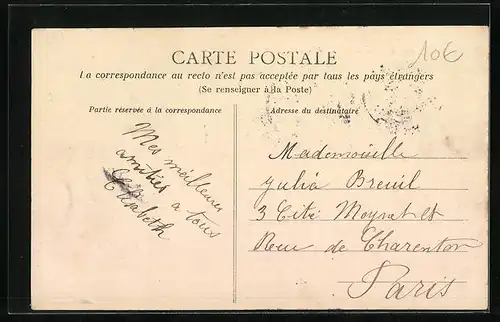 10€
CARTE POSTALE
La correspondance au recto n'est pas acceptée par tous les pays étrangers
(Se renseigner à la Poste)
Partie réservée à la correspondance
Adresse du destinataire
Mes meilleures
amitiés à tous
Elisabeth
Mademoiselle
Julia Breuil
3 Cité Moynet
Rue de Charenton
Paris